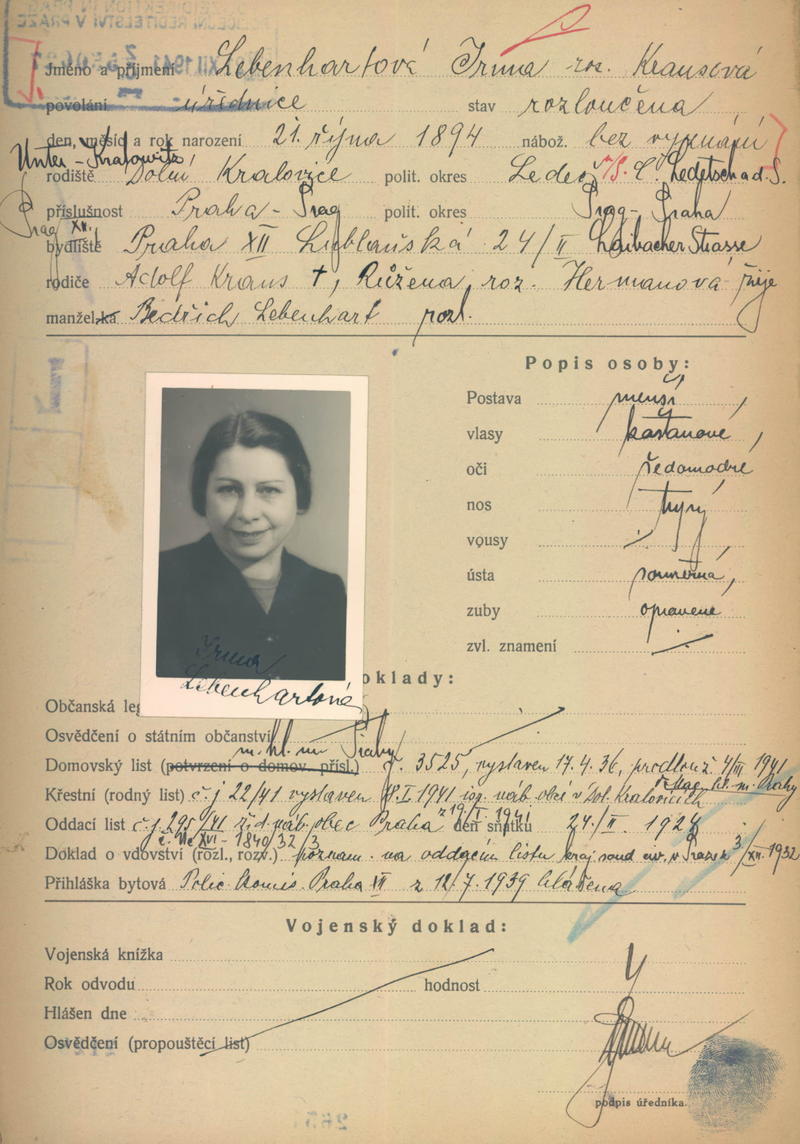 Jméno a příjmení Lebenhartová Irma roz. Krausová
povolání úřednice stav rozloučena
den, měsíc a rok narození 21. října 1894 nábož. bez vyznání
Unter-Kralowitz
rodiště Dolní Kralovice polit. okres Ledeč n/S. Ledetsch a d. S.
příslušnost Praha - Prag polit. okres Prag - Praha
Prag XII.
bydliště Praha XII Lublaňská 24/II Laibacher Strasse
rodiče Adolf Kraus †, Růžena, roz. Hermanová žije
manžel-ka Bedřich Lebenhart rozl.
Popis osoby:
Postava menší,
vlasy kaštanové,
oči šedomodré
nos
vousy
ústa souměrná,
zuby opravené
zvl. znamení
Irma
Lebenhartová
oklady:
Občanská leg
Osvědčení o státním občanství
m. hl. m. Prahy
Domovský list (potvrzení o domov. přísl.) č. 3525, vystaven 17.4.36, prodlouž. 4/III 1941
Křestní (rodný list) č.j. 22/41 vystaven I 1941 náb. obcí v Dol. Kralovicích
Oddací list č.j. 295/41 žid. náb. obec Praha z den sňatku 24/II. 1924
č. XVI - 1840/32/3
Doklad o vdovství (rozl., rozv.) poznam. na oddacím listu kraj. soud civ. v Praze z 3/XII. 1932
Přihláška bytová Polic. komis. Praha XII z 12.7.1939 hlášena
Vojenský doklad:
Vojenská knížka
Rok odvodu hodnost
Hlášen dne
Osvědčení (propouštěcí list)
podpis úředníka.